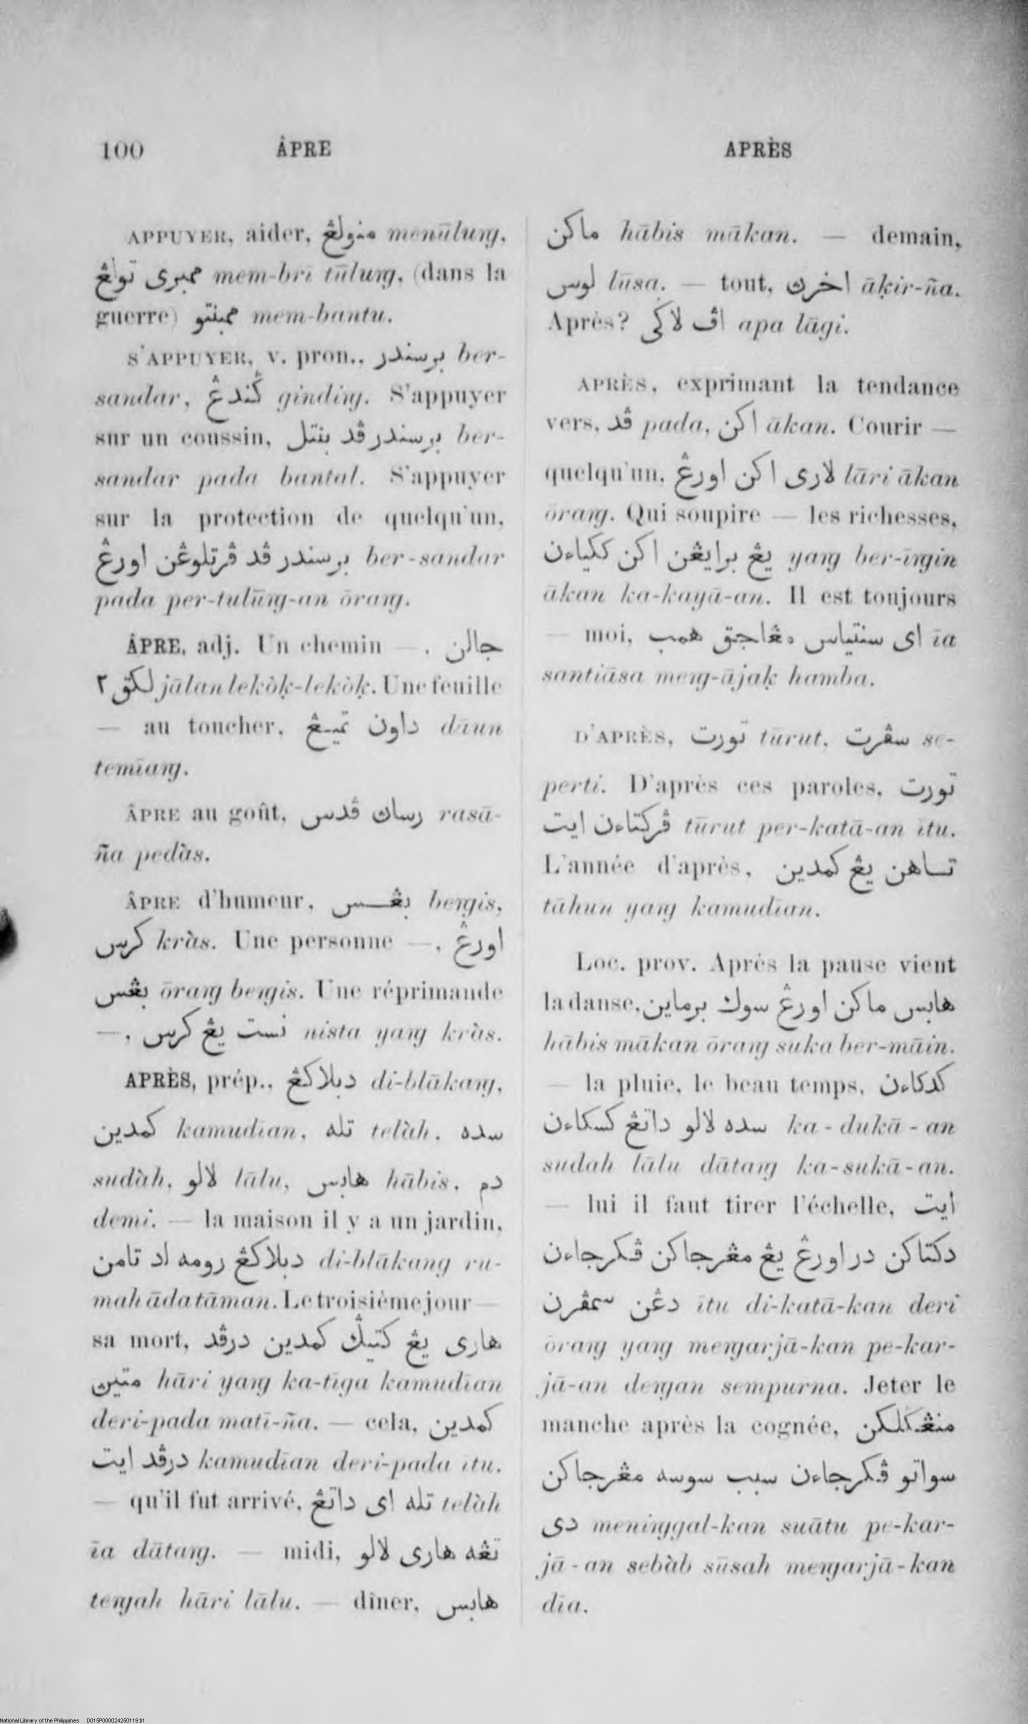 100 ÂPRE APRÈS
APPUYER, aider, منولڠ menūluṅg,
ممبرى تولڠ mem-brī tūluṅg, (dans la
guerre) ممبنتو mem-bantu.
S'APPUYER, v. pron., برسندر ber-
sandar, ݢندڠ gindiṅg. S'appuyer
sur un coussin, برسندر ڤد بنتل ber-
sandar pada bantal. S'appuyer
sur la protection de quelqu'un,
برسندر ڤد ڤرتلوڠن اورڠ ber-sandar
pada per-tulūṅg-an ōraṅg.
ÂPRE, adj. Un chemin —, جالن
لكق٢ jālan lekòḳ-lekòḳ. Une feuille
— au toucher, داون تميڠ dāun
temīaṅg.
ÂPRE au goût, رساڽ ڤدس rasā-
ña pedàs.
ÂPRE d'humeur, بڠس beṅgis,
كرس kràs. Une personne —, اورڠ
بڠس ōraṅg beṅgis. Une réprimande
—, نست يڠ كرس nista yaṅg kràs.
APRÈS, prép., دبلاكڠ di-blākaṅg,
كمدين kamudīan, تله telàh, سده
sudàh, لالو lālu, هابس hābis, دم
demi. — la maison il y a un jardin,
دبلاكڠ رومه اد تامن di-blākang ru-
mah āda tāman. Le troisième jour —
sa mort, هارى يڠ كتيݢ كمدين درڤد
متيڽ hāri yaṅg ka-tīga kamudīan
deri-pada matī-ña. — cela, كمدين
درڤد ايت kamudīan deri-pada ītu.
— qu'il fut arrivé, تله اى داتڠ telàh
īa dātaṅg. — midi, تڠه هارى لالو
teṅgah hāri lālu. — dîner, هابس
ماكن hābis mākan. — demain,
لوس lūsa. — tout, اخرڽ āḳir-ña.
Après? اڤ لاݢى apa lāgi.
APRÈS, exprimant la tendance
vers, ڤد pada, اكن ākan. Courir —
quelqu'un, لارى اكن اورڠ lāri ākan
ōraṅg. Qui soupire — les richesses,
يڠ برايڠن اكن ككياءن yaṅg ber-īṅgin
ākan ka-kayā-an. Il est toujours
— moi, اى سنتياس مڠاجق همب īa
santiāsa meṅg-ājaḳ hamba.
D'APRÈS, تورت tūrut, سڤرت se-
perti. D'après ces paroles, تورت
ڤركتاءن ايت tūrut per-katā-an ītu.
L'année d'après, تاهن يڠ كمدين
tāhun yaṅg kamudīan.
Loc. prov. Après la pause vient
la danse, هابس ماكن اورڠ سوك برماين
hābis mākan ōraṅg suka ber-māin.
— la pluie, le beau temps, كدكاءن
سده لالو داتڠ كسكاءن ka-dukā-an
sudah lālu dātaṅg ka-sukā-an.
— lui il faut tirer l'échelle, ايت
دكتاكن در اورڠ يڠ مڠرجاكن ڤكرجاءن
دڠن سمڤرن ītu di-katā-kan deri
ōraṅg yaṅg meṅgarjā-kan pe-kar-
jā-an deṅgan sempurna. Jeter le
manche après la cognée, منڠݢلكن
سواتو ڤكرجاءن سبب سوسه مڠرجاكن
دى meniṅggal-kan suātu pe-kar-
jā-an sebàb sūsah meṅgarjā-kan
dīa.
National Library of the Philippines